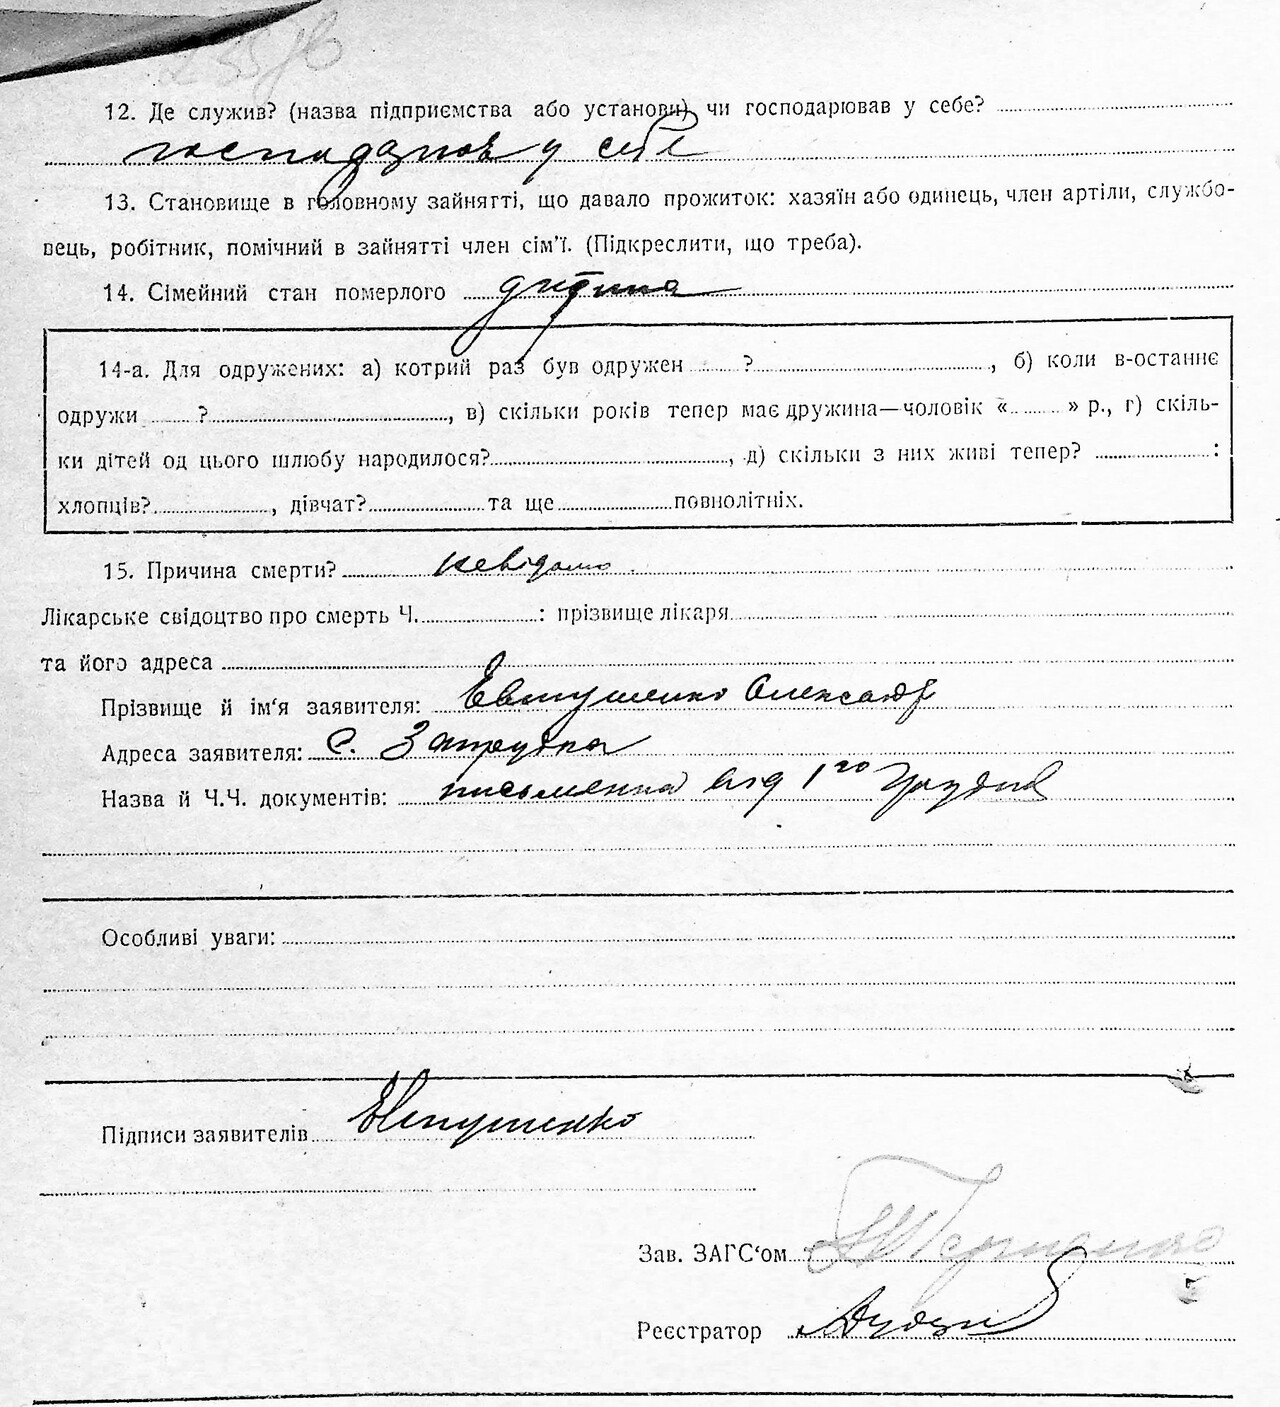 12. Де служив? (назва підприємства або установи) чи господарював у себе?
господарював у себе
13. Становище в головному зайнятті, що давало прожиток: хазяїн або одинець, член артіли, службо-
вець, робітник, помічний в зайнятті член сім'ї. (Підкреслити, що треба).
14. Сімейний стан померлого дитина
14-а. Для одружених: а) котрий раз був одружен ......?......, б) коли в-останнє
одружи ......?......, в) скільки років тепер має дружина—чоловік «......» р., г) скіль-
ки дітей од цього шлюбу народилося?......, д) скільки з них живі тепер? ......:
хлопців?......, дівчат?......та ще......повнолітніх.
15. Причина смерти? невідомо
Лікарське свідоцтво про смерть Ч.......: прізвище лікаря
та його адреса
Прізвище й ім'я заявителя: Евтушенко Олександр
Адреса заявителя: с. Затрудка
Назва й Ч.Ч. документів: письменна від 1го грудня
Особливі уваги:
Підписи заявителів Евтушенко
Зав. ЗАГС'ом
Реєстратор